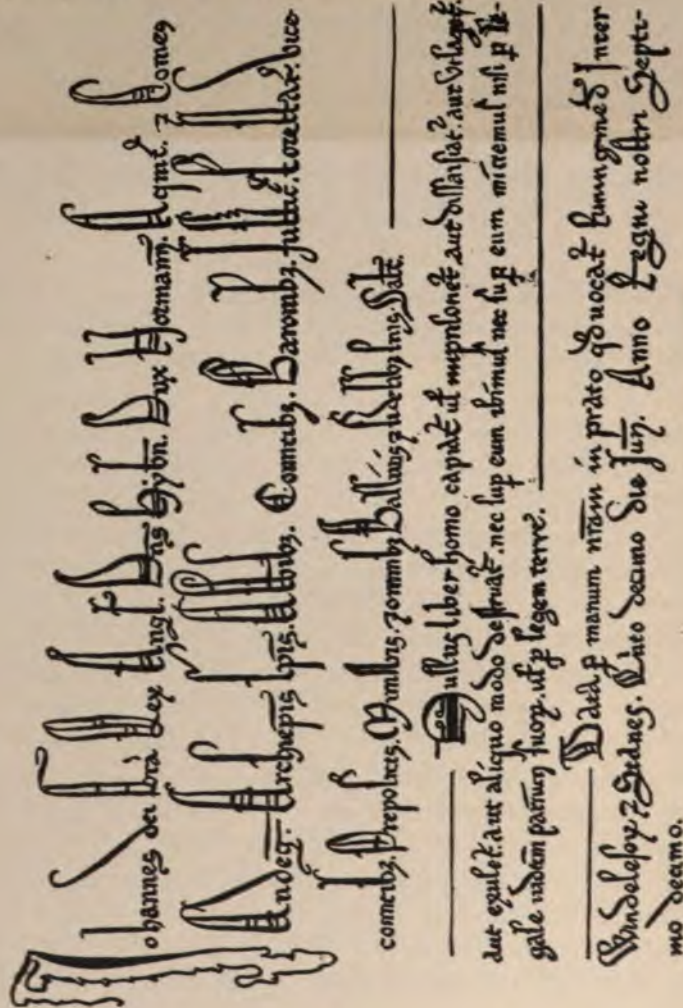 Johannes dei gr̄a Rex Angł. Dn̄s Hybn̄. Dux Normann̄. Aqnit̄. ⁊ Comes
Andeḡ. Archiep̄is Ep̄is. Abb̄ibȝ. Comitibȝ. Baronibȝ. Justić. Forestar̄. Vice
comitibȝ. Prepositis. Ministris. ⁊ omnibȝ Ballivis ⁊ fidelibȝ suis. Salt̄.
Nullus liber homo capiat̄ ut̄ imprisonet̄ aut dissaisiat̄. aut Utlaget̄.
aut exulet̄. aut aliquo modo destruat̄. nec sup̄ eum ibimus nec sup̄ eum mittemus nisi p̄ le-
gale iudicium parium suoꝝ. ut̄ p̄ legem terre.
Data p̄ manum nr̄am in prato qd̄ vocat̄ Runingmed̄ Inter
Windelesoꝝ ⁊ Stanes. Quinto decimo die Jun̄. Anno Regni nostri Septi-
mo decimo.